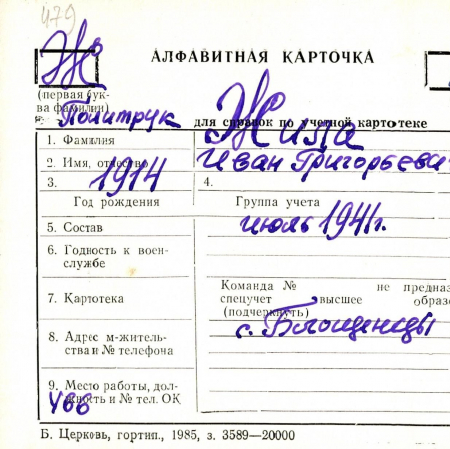 479
Ж
АЛФАВИТНАЯ КАРТОЧКА
(первая бук-
ва фамилии)
Политрук для справок по учетной картотеке
1. Фамилия Жила
2. Имя, отчество Иван Григорьевич
3. 1914 4.
Год рождения Группа учета
5. Состав июль 1941г.
6. Годность к воен-
службе
Команда № не предназ
7. Картотека спецучет высшее образо
(подчеркнуть)
с. Блощенцы
8. Адрес м-житель-
ства и № телефона
9. Место работы, дол-
жность и № тел. ОК
466
Б. Церковь, гортип., 1985, з. 3589—20000